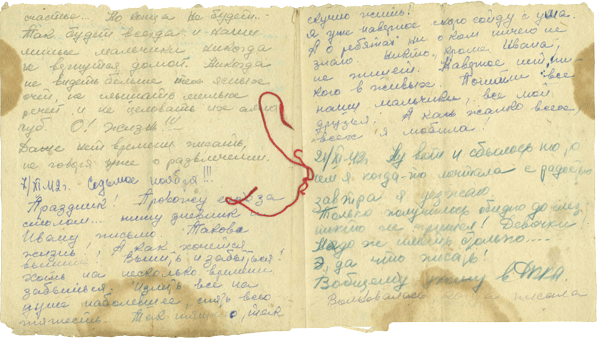 счастье... Но конца не будет.
Так будет всегда и наши
милые мальчики никогда
не вернутся домой. Никогда
не видеть больше тех ясных
очей, не слышать милых
речей и не целовать их алых
губ. О! Жизнь!!!
Даже нет времени писать,
не говоря уже о развлечении.
7/XI-42г. Седьмое ноября!!!
Праздник! Провожу его за
столом... пишу дневник
Ивану письмо. Такова
жизнь! А как хочется
Выпить и забыться!
Хоть на несколько времени
забыться. Излить все на
душе наболевшее, снять всю
тяжесть. Так тяжело, так
скучно жить!
Я уже наверное скоро сойду с ума.
А о ребятах ни о ком ничего не
знаю. Никто, кроме Ивана,
не пишет. Наверное нет ни-
кого в живых. Погибли все
наши мальчики, все мои
друзья! А как жалко всех,
всех я любила!
24/XI-42г. Ну вот и сбылось то, о
чем я когда-то мечтала с радостью
завтра я уезжаю.
Только получилось обидно до слез,
никто не пришел! Девочки!
Надо же им только...
Э, да что писать!
Вообщем иду в
Волновалась, писала